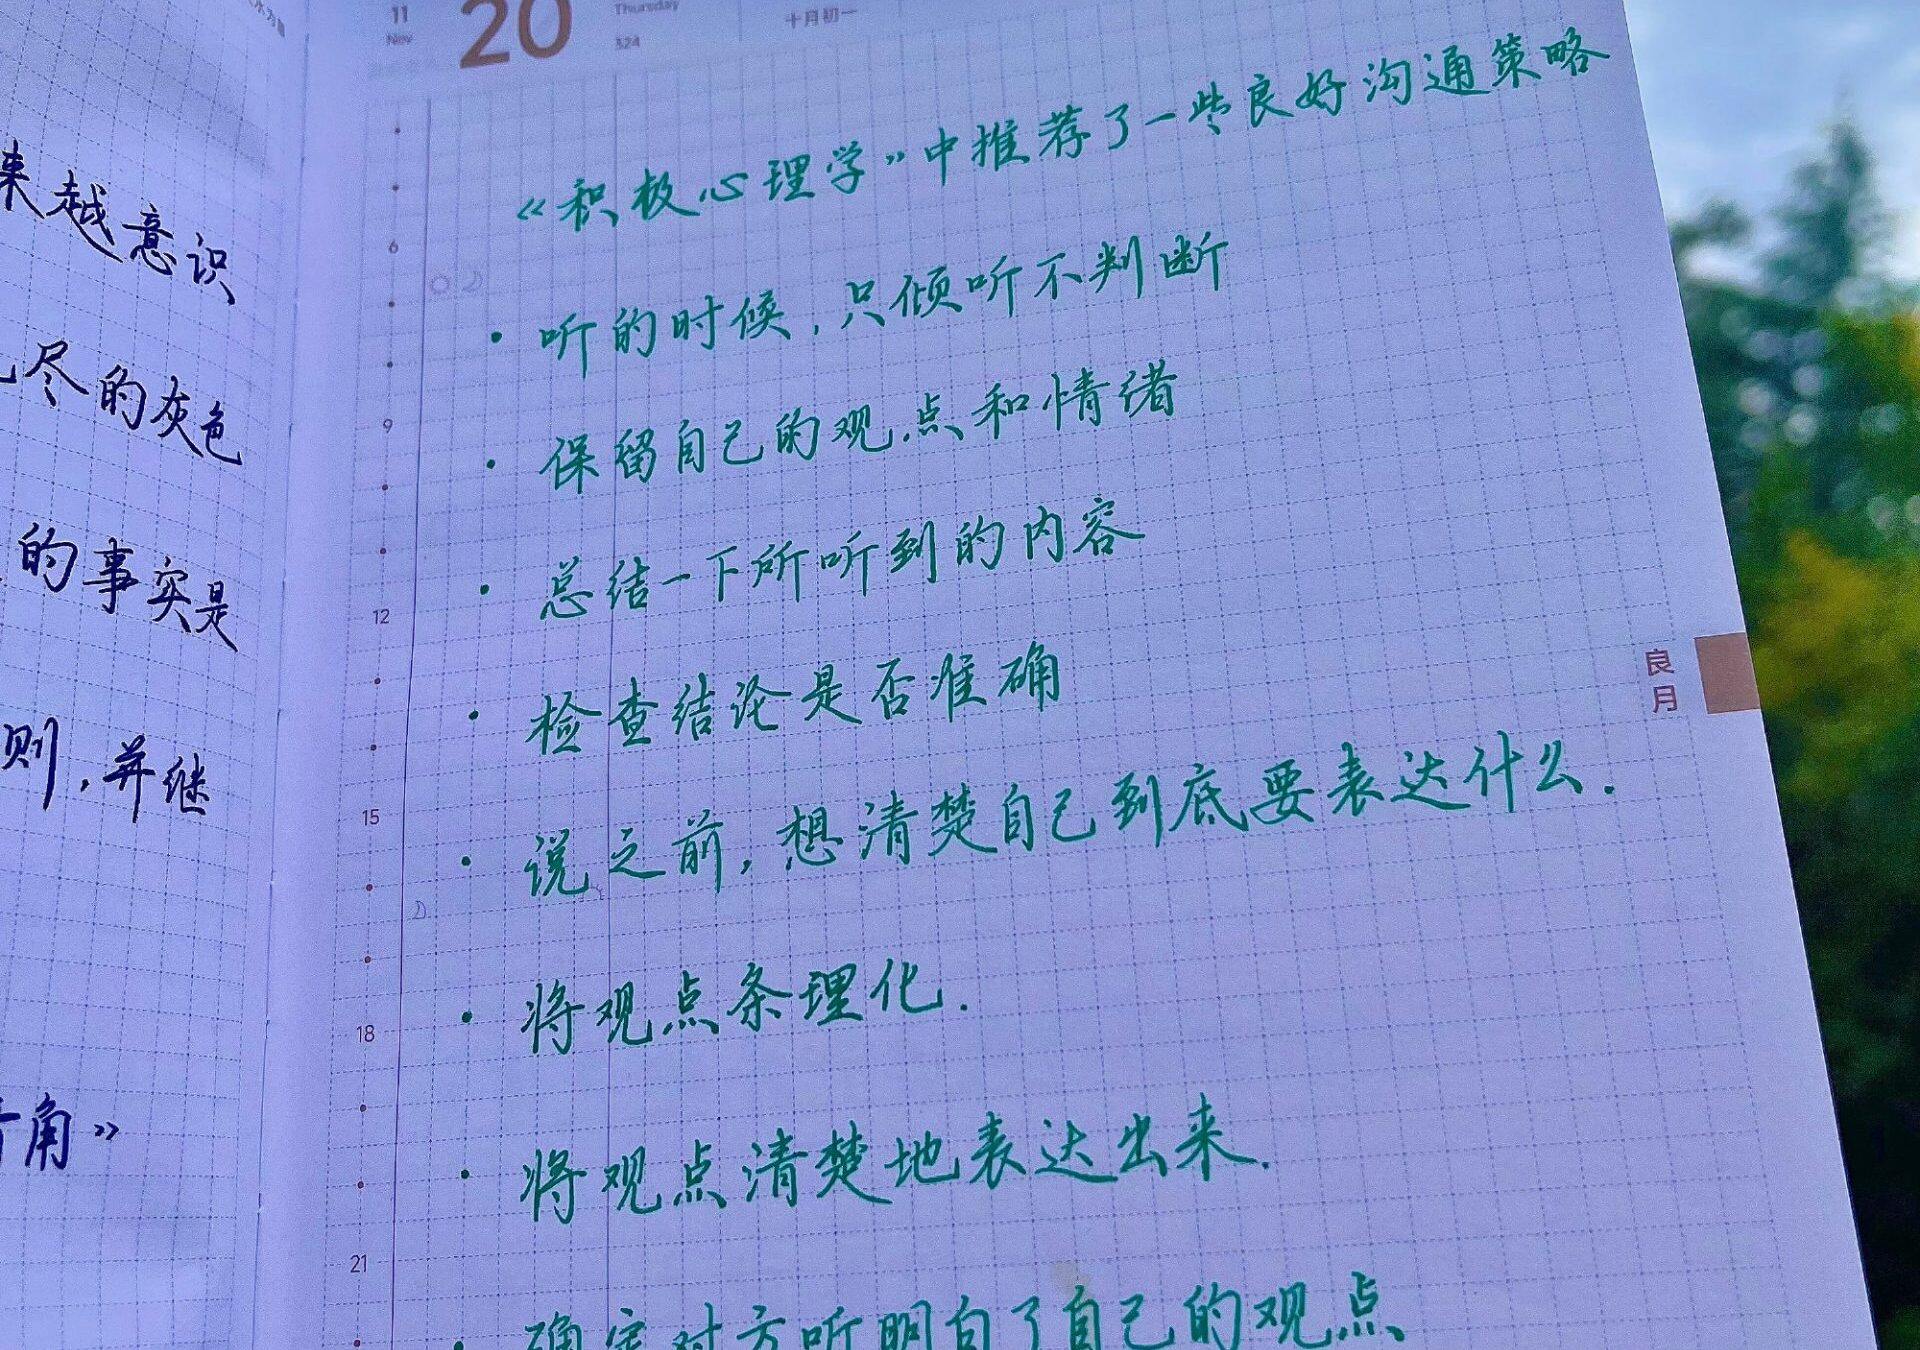 来越意识
尽的灰色
的事实是
则,并继
角》
11
Nov
20
Thursday
324
十月初一
《积极心理学》中推荐了一些良好沟通策略
· 听的时候,只倾听不判断
· 保留自己的观点和情绪
· 总结一下所听到的内容
· 检查结论是否准确
· 说之前,想清楚自己到底要表达什么.
· 将观点条理化.
· 将观点清楚地表达出来.
· 确定对方听明白了自己的观点
6
9
12
15
18
21
良月